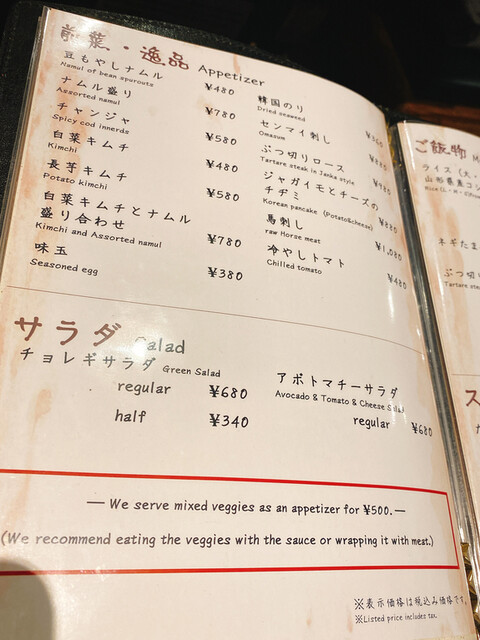 前菜・逸品 Appetizer
豆もやしナムル ¥480
Namul of bean sprouts
ナムル盛り ¥780
Assorted namul
チャンジャ ¥580
Spicy cod innerds
白菜キムチ ¥480
Kimchi
長芋キムチ ¥580
Potato kimchi
白菜キムチとナムル
盛り合わせ ¥780
Kimchi and Assorted namul
味玉 ¥380
Seasoned egg
韓国のり
Dried seaweed
センマイ刺し
Omasum
ぶつ切りロース
Tartare steak in Janke style
ジャガイモとチーズの
チヂミ ¥880
Korean pancake (Potato&cheese)
馬刺し ¥1,080
raw Horse meat
冷やしトマト ¥480
Chilled tomato
サラダ Salad
チョレギサラダ Green Salad
regular ¥680
half ¥340
アボトマチーサラダ
Avocado & Tomato & Cheese Salad
regular ¥680
— We serve mixed veggies as an appetizer for ¥500. —
(We recommend eating the veggies with the sauce or wrapping it with meat.)
※表示価格は税込み価格です。
※Listed price includes tax.
ご飯物
ライス (大・
山形県産コシ
Rice (L・M・
ネギたま
ぶつ切り
Tartare steak